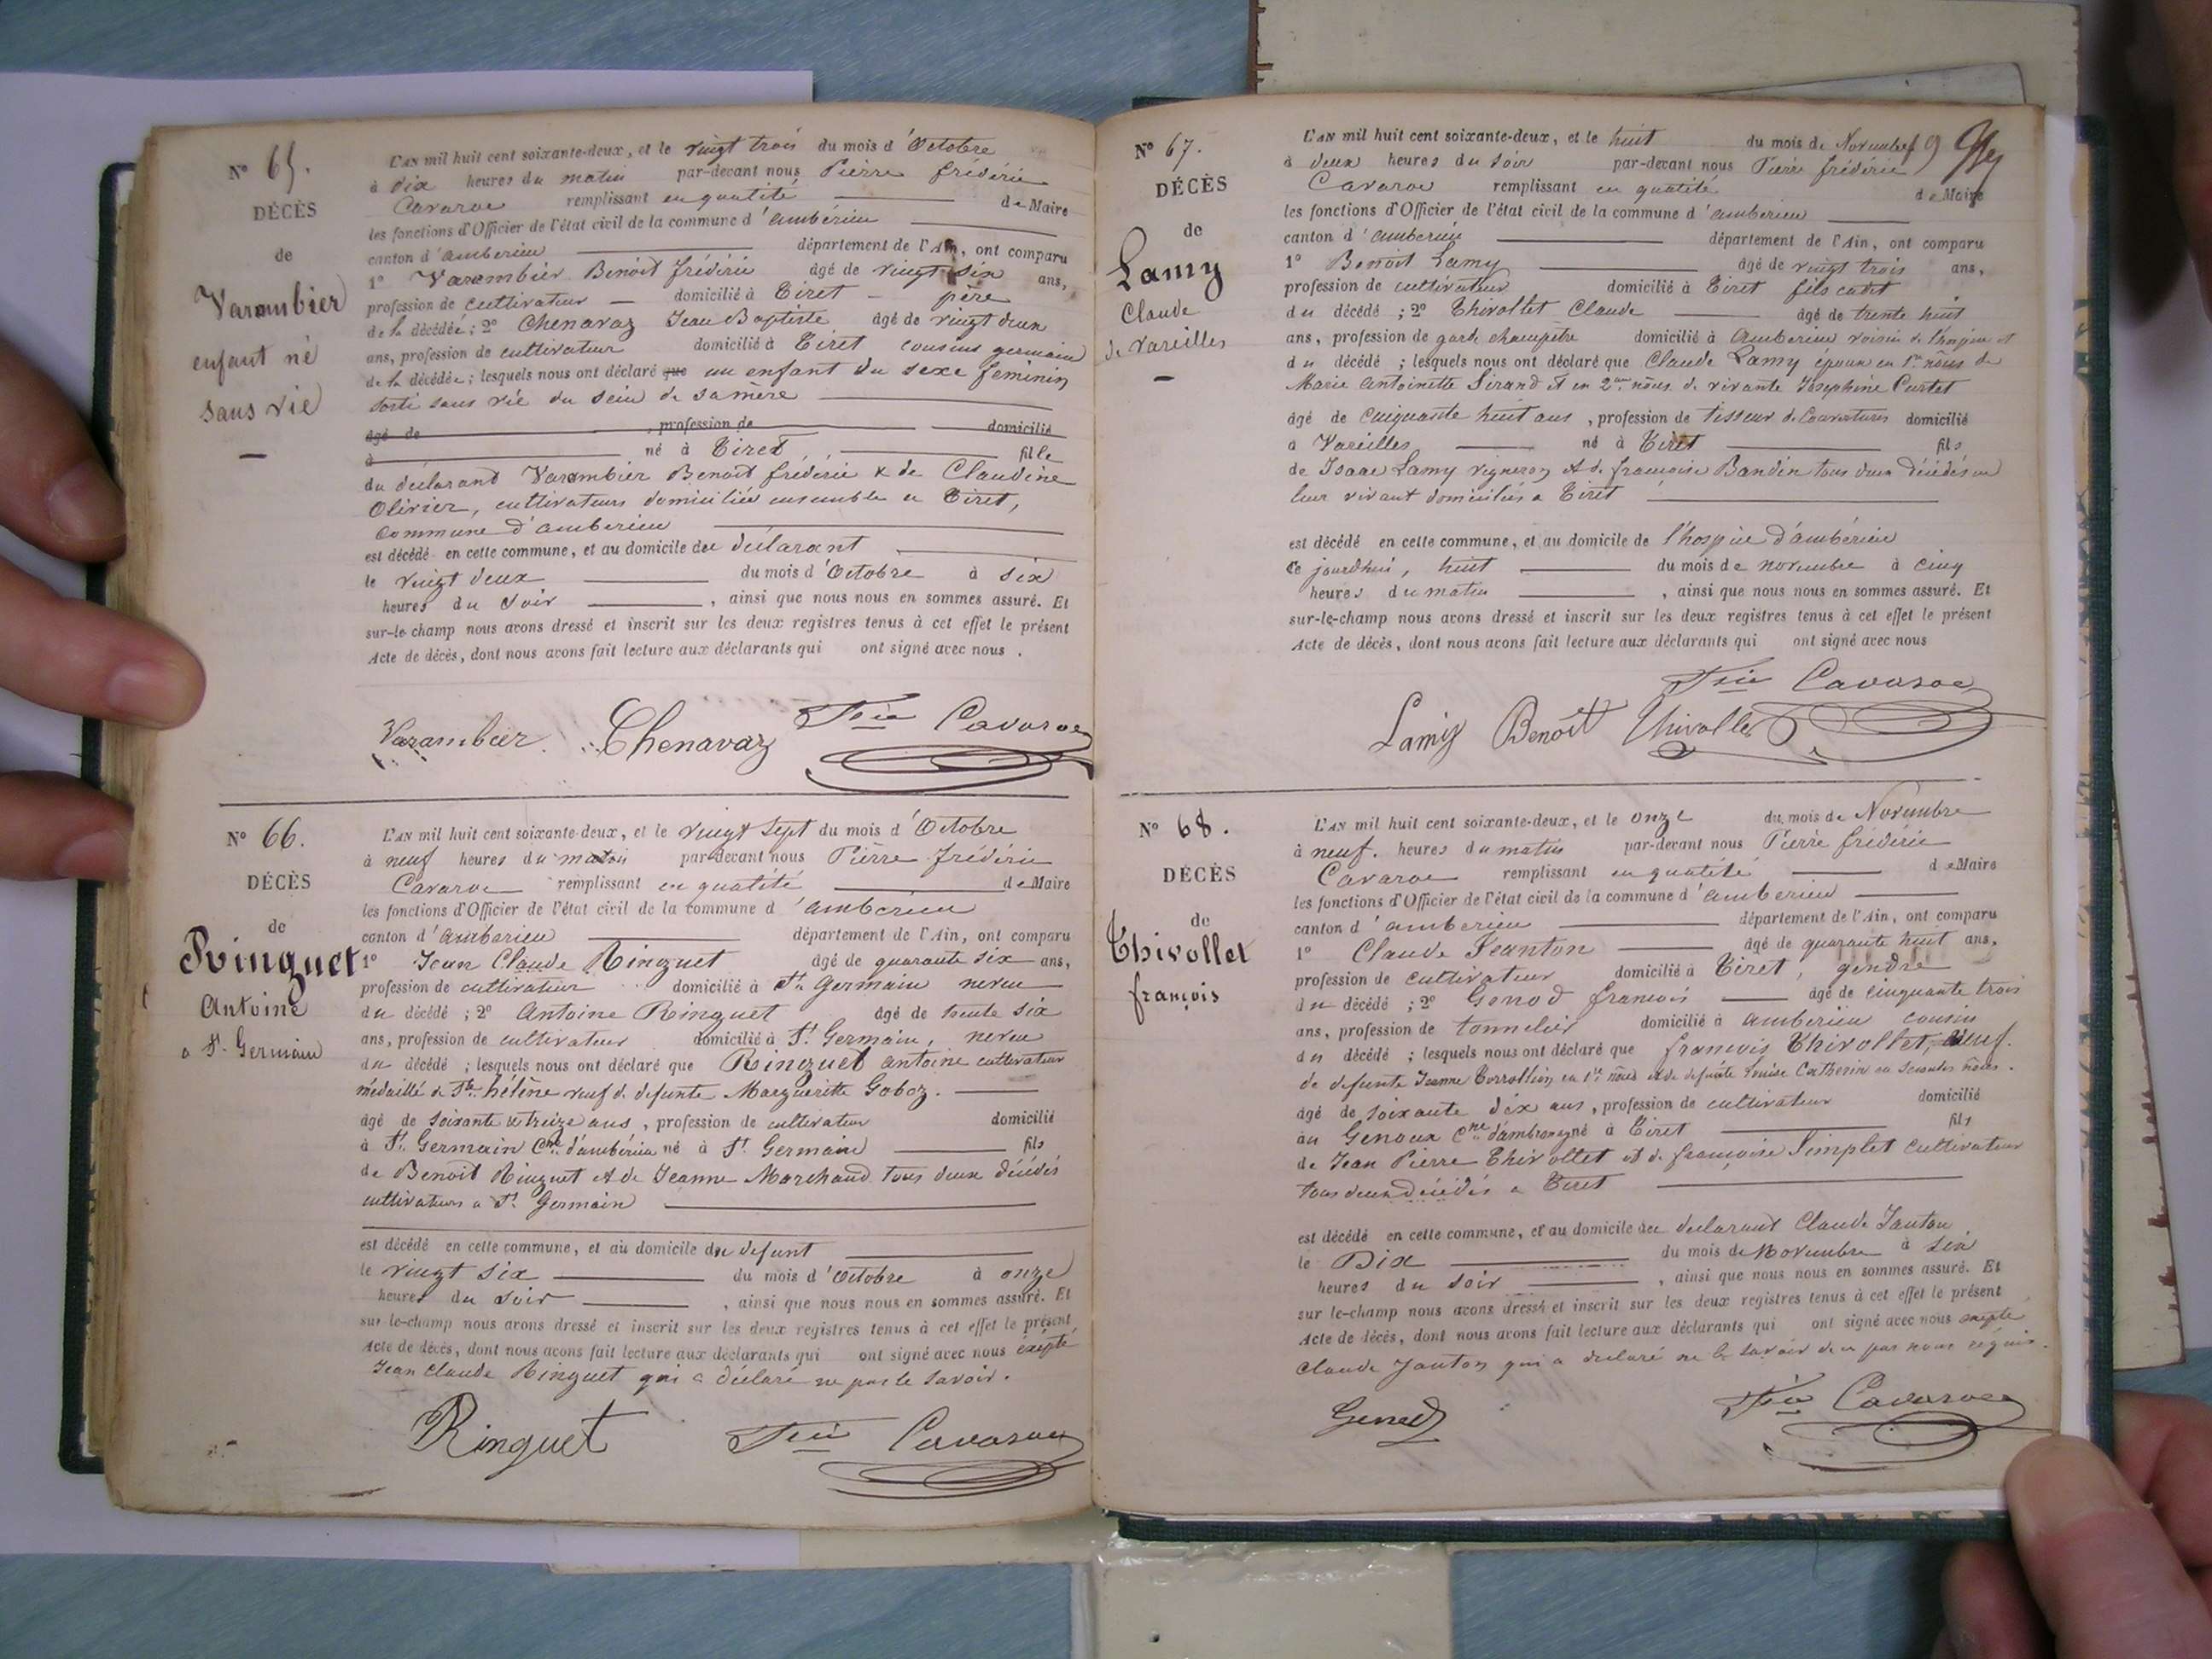 N° 65.
DÉCÈS
de
Varambier
enfant né
sans vie
L'AN mil huit cent soixante-deux, et le vingt trois du mois d'Octobre
à dix heures du matin par-devant nous Pierre frédéric
Cavaroc remplissant en qualité de Maire
les fonctions d'Officier de l'état civil de la commune d'ambérieu
canton d'amberieu département de l'Ain, ont comparu
1° Varambier Benoit frédéric âgé de vingt six ans,
profession de cultivateur domicilié à Tiret père
de la décédée; 2° Chenavaz Jean Baptiste âgé de vingt deux
ans, profession de cultivateur domicilié à Tiret cousins germain
de la décédée; lesquels nous ont déclaré que un enfant du sexe feminin
sorti sans vie du sein de sa mère
âgé de , profession de domicilié
à né à Tiret fille
du déclarant Varambier Benoit frédéric & de Claudine
Olivier, cultivateurs domiciliés ensemble a Tiret,
Commune d'amberieu
est décédé en cette commune, et au domicile du déclarant
le vingt deux du mois d'Octobre à six
heures du soir , ainsi que nous nous en sommes assuré. Et
sur-le-champ nous avons dressé et inscrit sur les deux registres tenus à cet effet le présent
Acte de décès, dont nous avons fait lecture aux déclarants qui ont signé avec nous.
Varambier Chenavaz Fric Cavaroc
N° 66.
DÉCÈS
de
Ringuet
Antoine
a St. Germain
L'AN mil huit cent soixante-deux, et le vingt sept du mois d'Octobre
à neuf heures du matin par-devant nous Pierre frédéric
Cavaroc remplissant en qualité de Maire
les fonctions d'Officier de l'état civil de la commune d'amberieu
canton d'amberieu département de l'Ain, ont comparu
1° Jean Claude Ringuet âgé de quarante six ans,
profession de cultivateur domicilié à St. Germain neveu
du décédé; 2° Antoine Ringuet âgé de trente six
ans, profession de cultivateur domicilié à St. Germain, neveu
du décédé; lesquels nous ont déclaré que Ringuet antoine cultivateur
médaillé de Ste. hélène veuf de defunte Marguerite Goboz.
âgé de soixante & treize ans, profession de cultivateur domicilié
à St. Germain Cne d'ambérieu né à St. Germain fils
de Benoit Ringuet et de Jeanne Marchand tous deux décédés
cultivateurs a St. Germain
est décédé en cette commune, et au domicile du defunt
le vingt six du mois d'octobre à onze
heures du soir , ainsi que nous nous en sommes assuré. Et
sur-le-champ nous avons dressé et inscrit sur les deux registres tenus à cet effet le présent
Acte de décès, dont nous avons fait lecture aux déclarants qui ont signé avec nous excepté
Jean Claude Ringuet qui a déclaré ne pas le savoir.
Ringuet Fric Cavaroc
N° 67.
DÉCÈS
de
Lamy
Claude
de Vareilles
L'AN mil huit cent soixante-deux, et le huit du mois de Novembre
à deux heures du soir par-devant nous Pierre frédéric
Cavaroc remplissant en qualité de Maire
les fonctions d'Officier de l'état civil de la commune d'amberieu
canton d'amberieu département de l'Ain, ont comparu
1° Benoit Lamy âgé de vingt trois ans,
profession de cultivateur domicilié à Tiret fils cadet
du décédé; 2° Thivollet Claude âgé de trente huit
ans, profession de garde champêtre domicilié à Amberieu voisin de l'hospice et
du décédé; lesquels nous ont déclaré que Claude Lamy époux en 1re nôces de
Marie Antoinette Sirand et en 2eme nôces de vivante Joséphine Curtet
âgé de cinquante huit ans, profession de tisseur de Couvertures domicilié
à Vareilles né à Tiret fils
de Isaac Lamy vigneron et de françoise Bandin tous deux décédés en
leur vivant domiciliés a Tiret
est décédé en cette commune, et au domicile de l'hospice d'ambérieu
Ce jourdhui, huit du mois de novembre à cinq
heures du matin , ainsi que nous nous en sommes assuré. Et
sur-le-champ nous avons dressé et inscrit sur les deux registres tenus à cet effet le présent
Acte de décès, dont nous avons fait lecture aux déclarants qui ont signé avec nous
Fric Cavaroc
Lamy Benoît Thivollet
N° 68.
DÉCÈS
de
Thivollet
françois
L'AN mil huit cent soixante-deux, et le onze du mois de Novembre
à neuf. heures du matin par-devant nous Pierre frédéric
Cavaroc remplissant en qualité de Maire
les fonctions d'Officier de l'état civil de la commune d'amberieu
canton d'amberieu département de l'Ain, ont comparu
1° Claude Jeanton âgé de quarante huit ans,
profession de cultivateur domicilié à Tiret, gendre
du décédé; 2° Genod françois âgé de cinquante trois
ans, profession de tonnelier domicilié à amberieu cousin
du décédé; lesquels nous ont déclaré que françois Thivollet, veuf.
de defunte Jeanne en 1re nôces et de defunte Louise Catherin en secondes nôces.
âgé de soixante dix ans, profession de cultivateur domicilié
au Genoux Cne d'ambronay né à Tiret fils
de Jean Pierre Thivollet et de françoise Simplet cultivateur
tous deux décédés a Tiret
est décédé en cette commune, et au domicile du declarant Claude Janton
le Dix du mois de Novembre à six
heures du soir , ainsi que nous nous en sommes assuré. Et
sur le-champ nous avons dressé et inscrit sur les deux registres tenus à cet effet le présent
Acte de décès, dont nous avons fait lecture aux déclarants qui ont signé avec nous excepté
Claude Janton qui a declaré ne le savoir de ce par nous réquis.
Genod Fric Cavaroc